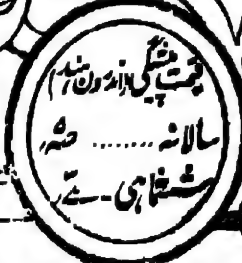 قیمت پیشگی (اندرون ہند)
سالانہ ........
ششماہی -